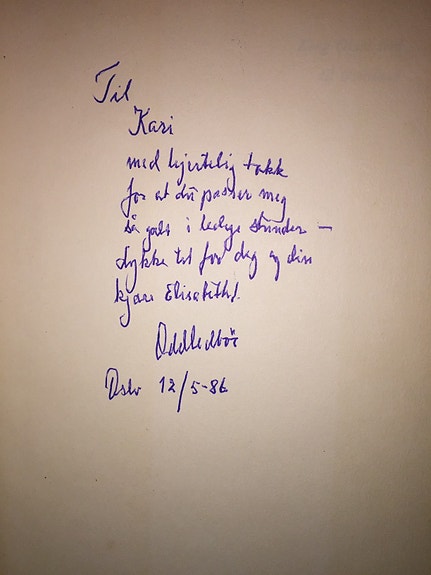 Til
Kari
med hjertelig takk
for at du passer meg
så godt i ledige stunder –
Lykke til for deg og din
kjære Elisabeth!
Oslo 12/5-86